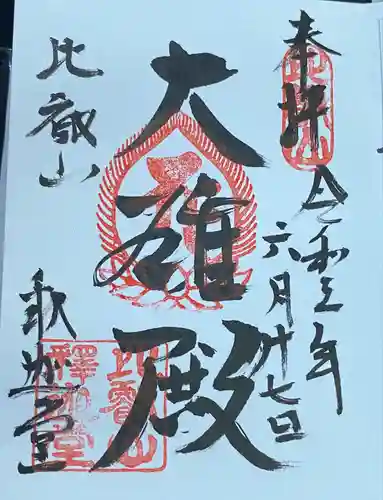 奉拝
令和三年
六月廿七日
大雄殿
比叡山
釈迦堂
比叡山
釋迦堂